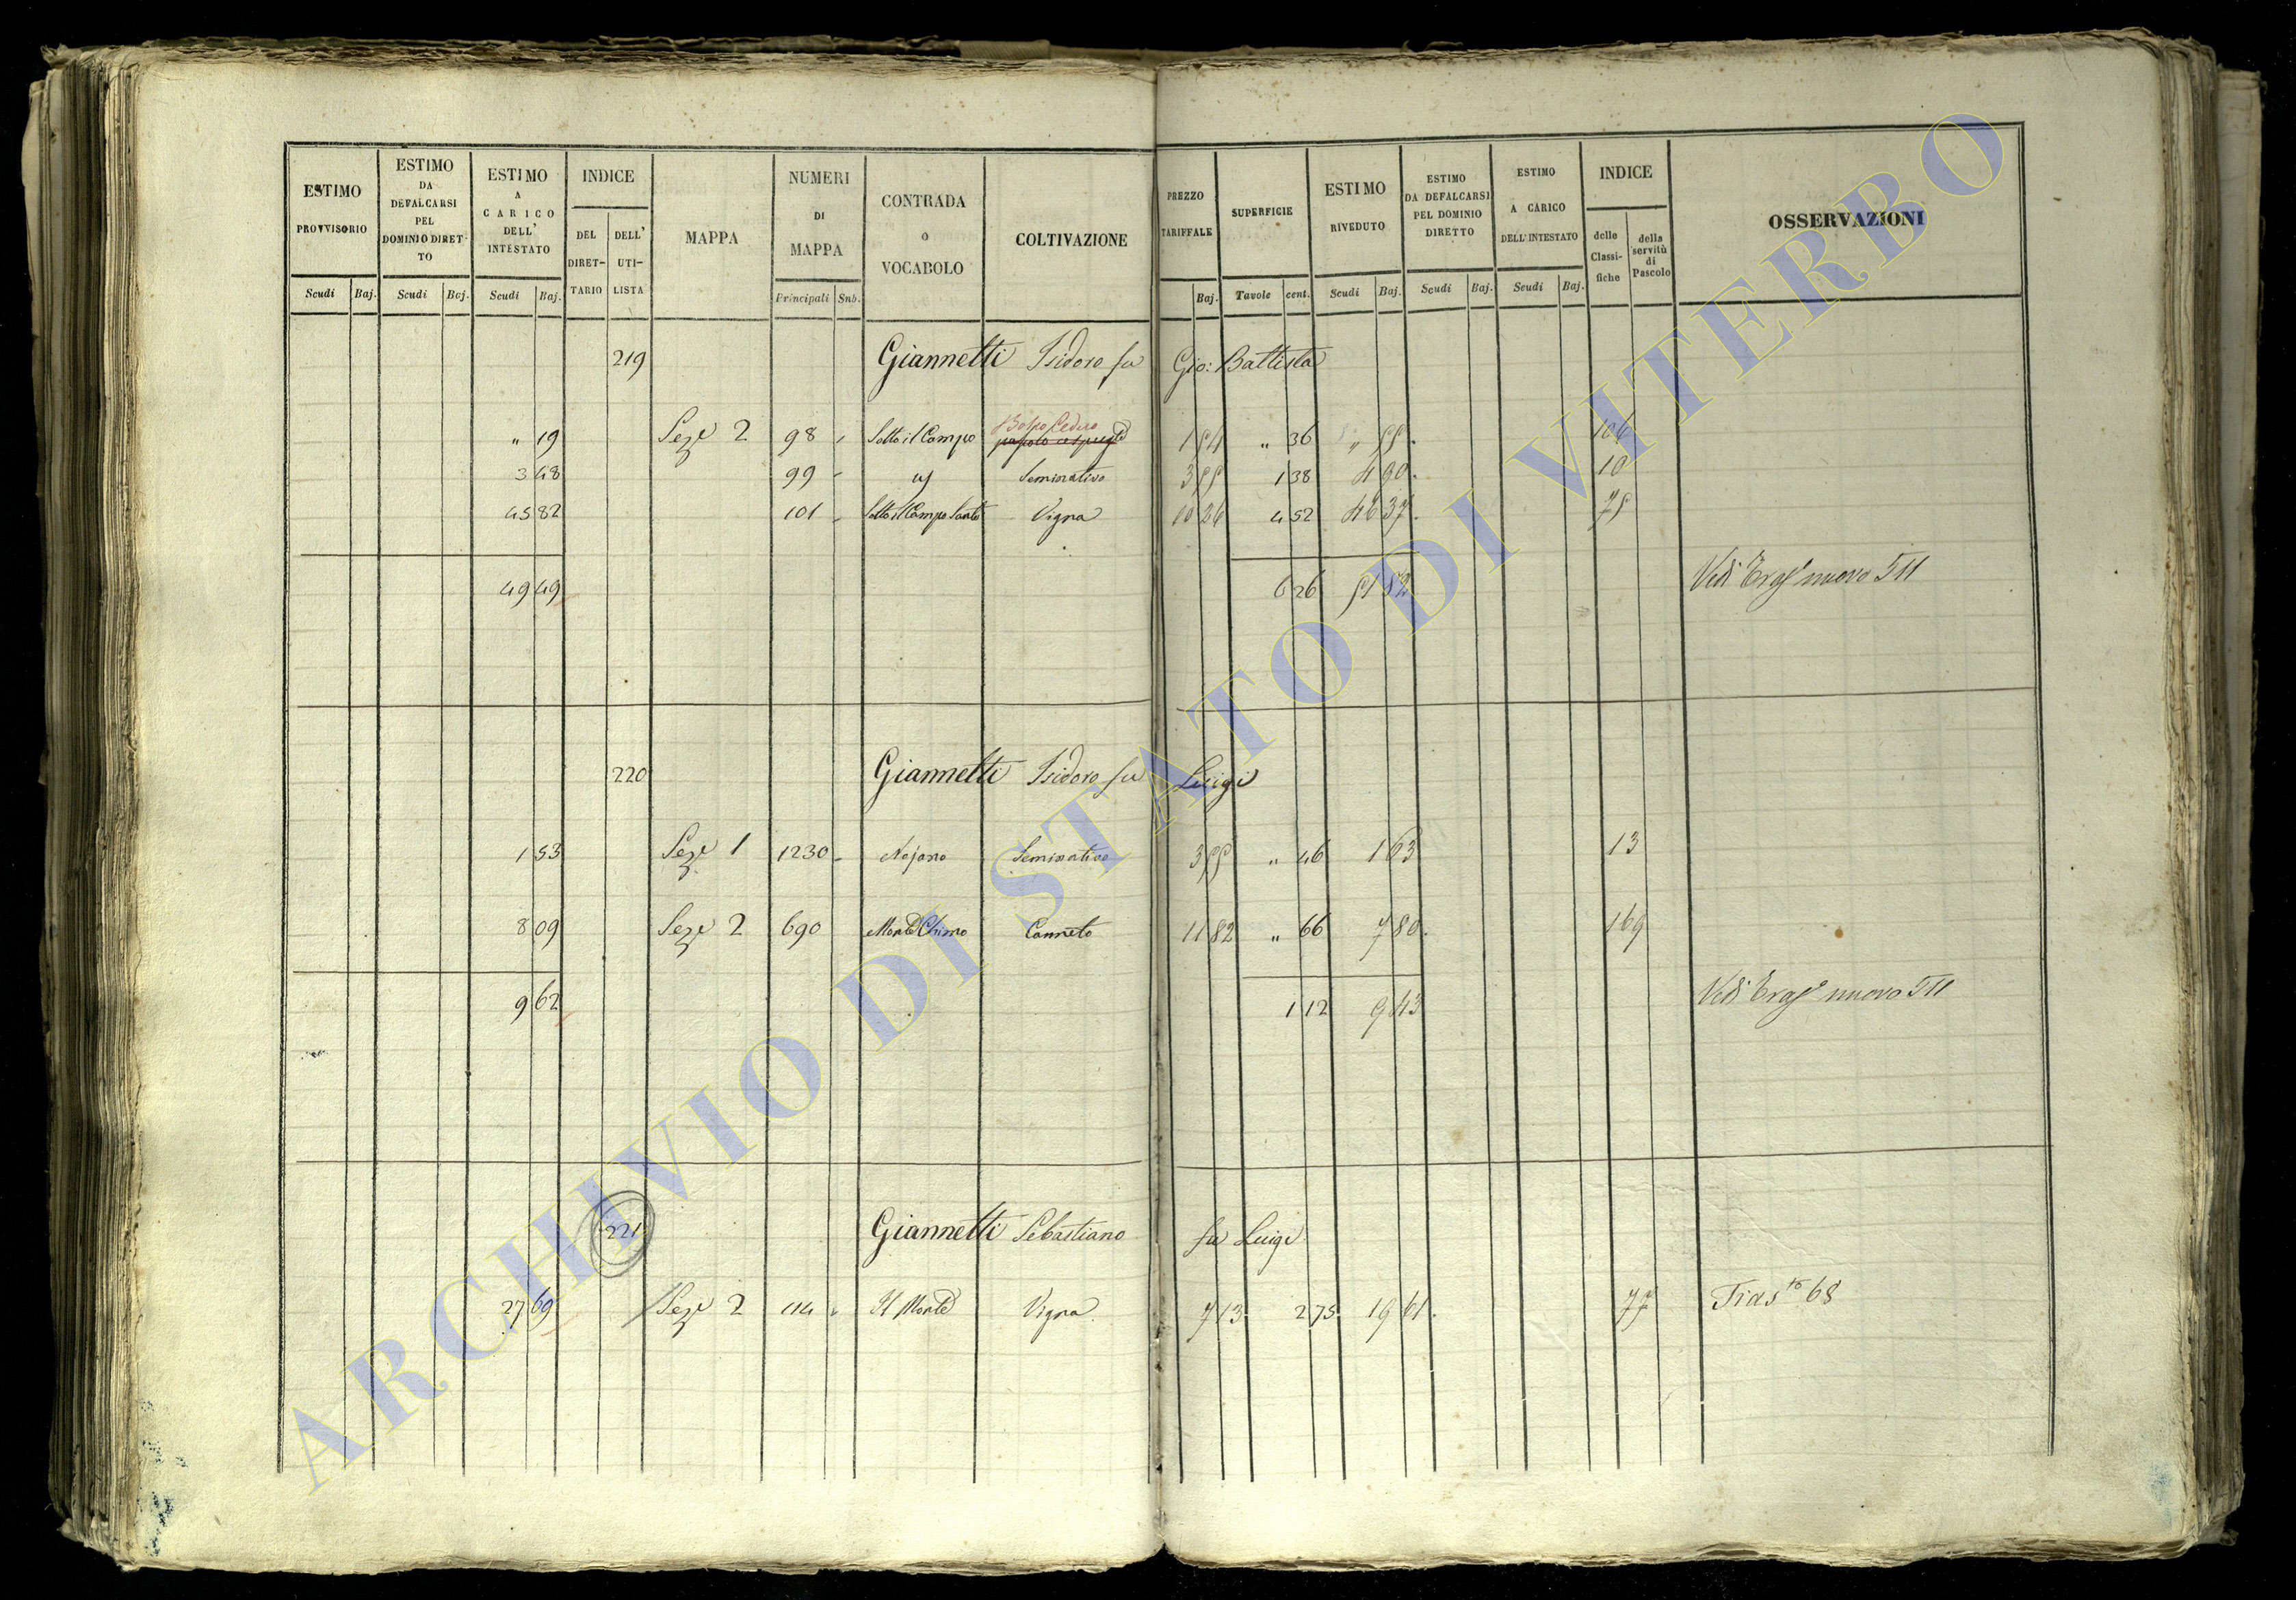 ESTIMO PROVVISORIO
ESTIMO DA DEFALCARSI PEL DOMINIO DIRETTO
ESTIMO A CARICO DELL' INTESTATO
INDICE
DEL DIRETTARIO
DELL' UTILISTA
MAPPA
NUMERI DI MAPPA
CONTRADA O VOCABOLO
COLTIVAZIONE
PREZZO TARIFFALE
SUPERFICIE
ESTIMO RIVEDUTO
ESTIMO DA DEFALCARSI PEL DOMINIO DIRETTO
ESTIMO A CARICO DELL' INTESTATO
INDICE
delle Classifiche
della servitù di Pascolo
OSSERVAZIONI
Scudi Baj. Scudi Baj. Scudi Baj. Principali Sub. Baj. Tavole cent. Scudi Baj. Scudi Baj. Scudi Baj.
219 Giannetti Isidoro fu Gio: Battista
Bosco Ceduo
" 19 Seze 2 98 Sotto il Campo 1 54 " 36 " 55 104
3 48 99 Seminativo 3 55 1 38 4 90 10
45 82 101 Sotto il Campo Santo Vigna 10 26 4 52 46 37 75
49 49 6 26 51 82 Vedi nuovo 511
220 Giannetti Isidoro fu Luigi
1 53 Seze 1 1230 Nojano Seminativo 3 55 " 46 1 63 13
8 09 Seze 2 690 Canneto 11 82 " 66 7 80 169
9 62 1 12 9 43 Vedi nuovo 511
221 Giannetti Sebastiano fu Luigi
27 69 Seze 2 114 Il Monte Vigna 7 13 2 75 19 61 77 68
ARCHIVIO DI STATO DI VITERBO